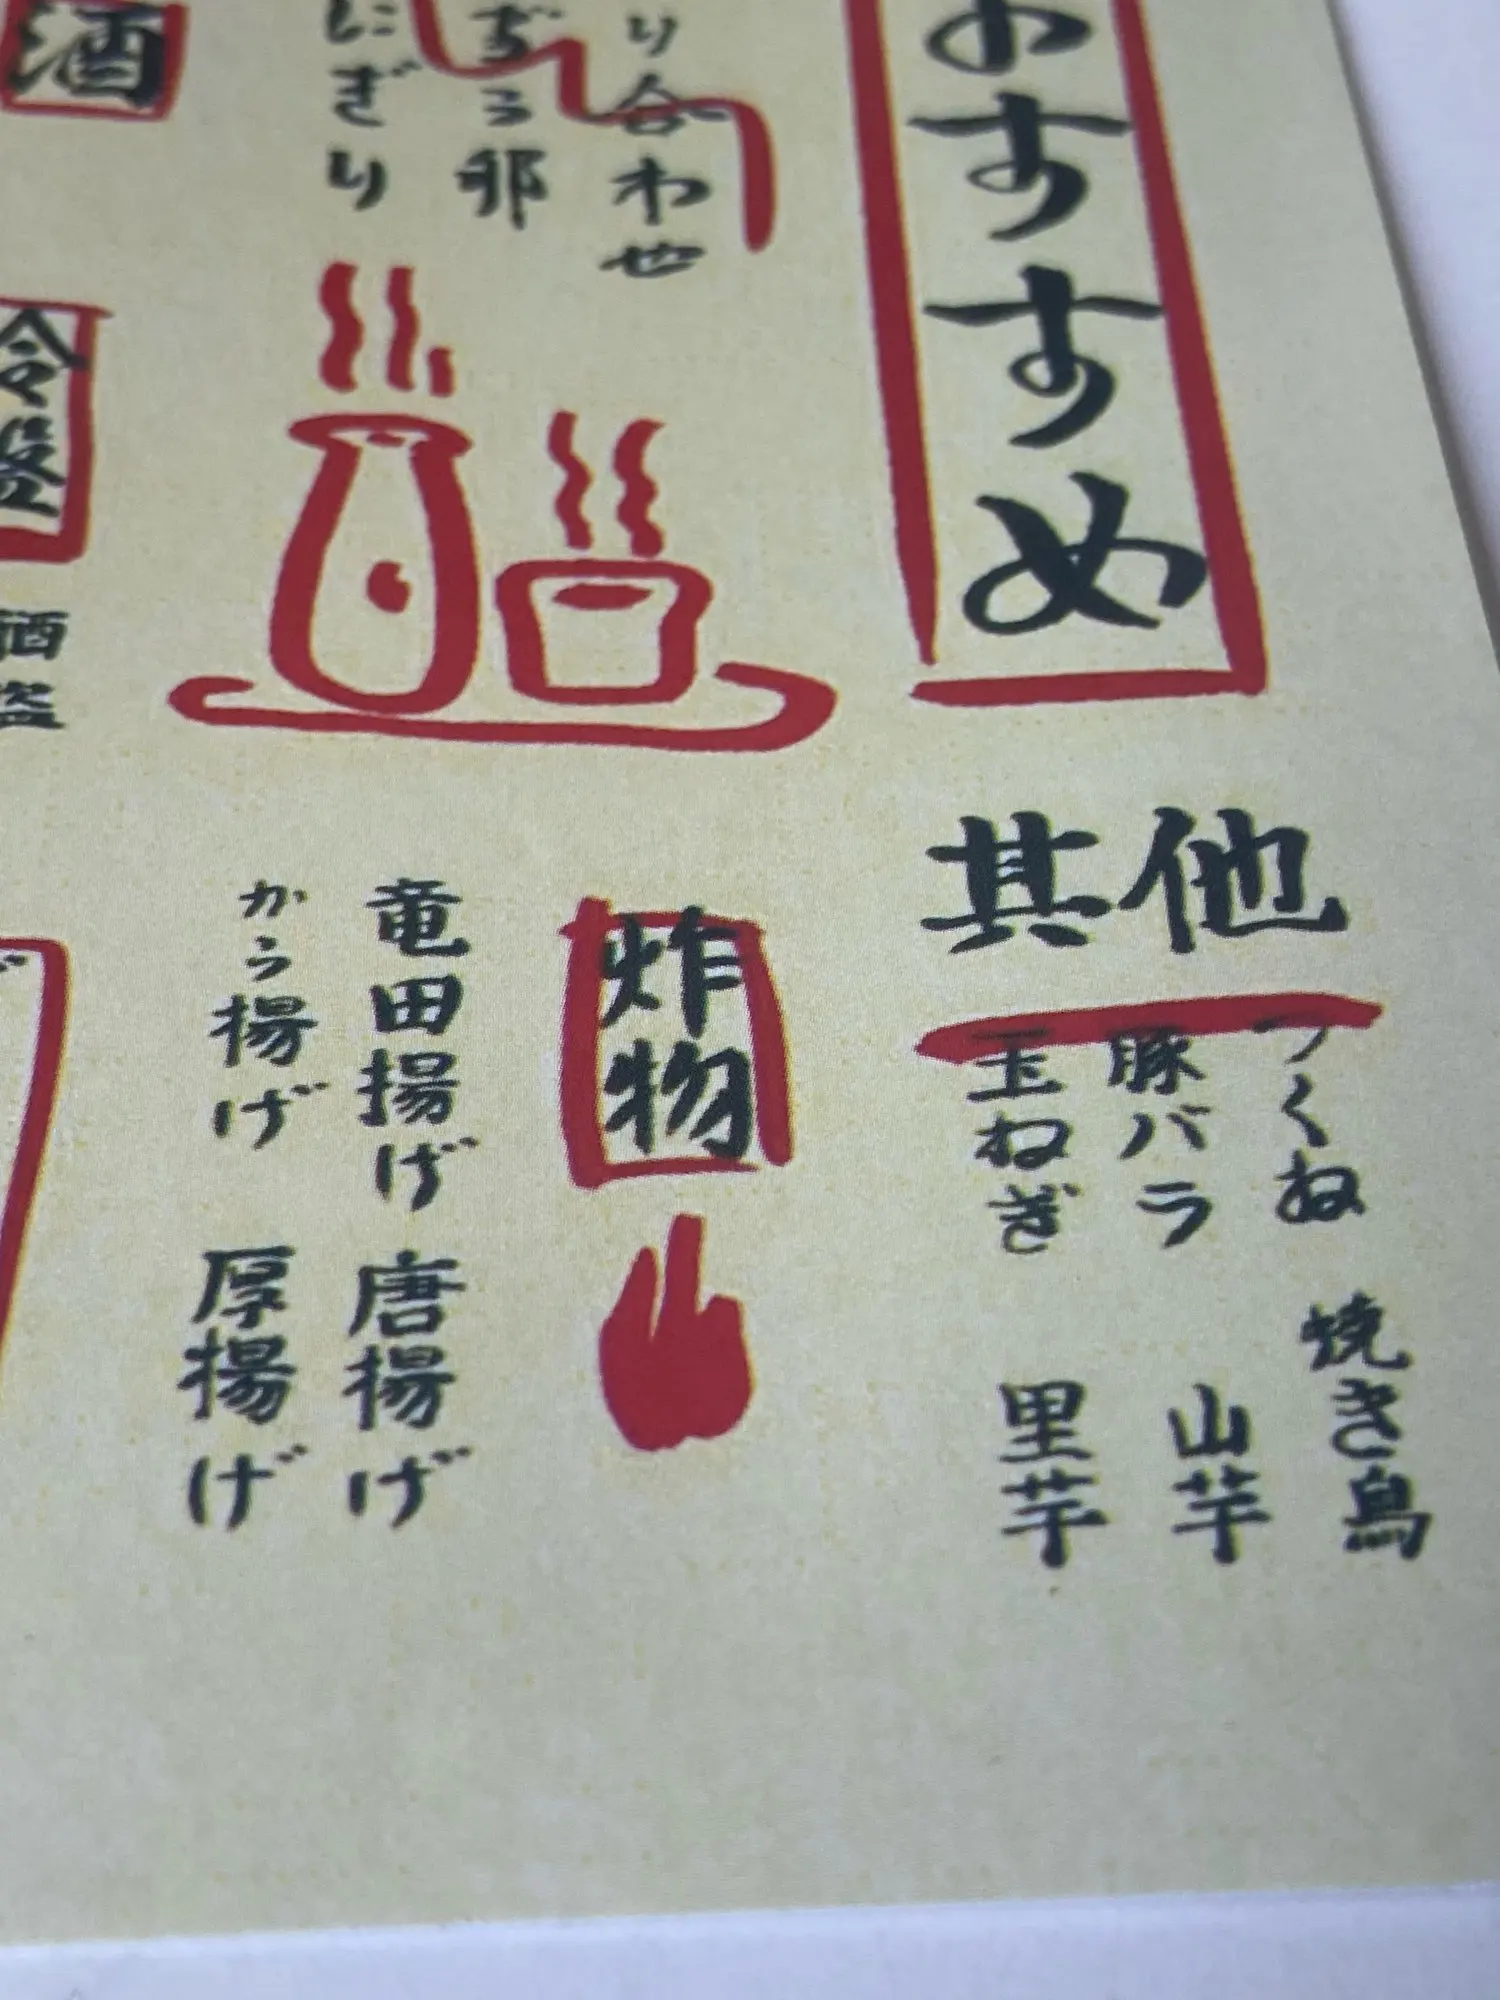 おすすめ
り合わせ
にぎり
酒
冷盤
酒盗
其他
つくね
焼き鳥
豚バラ
山芋
玉ねぎ
里芋
炸物
竜田揚げ
唐揚げ
から揚げ
厚揚げ